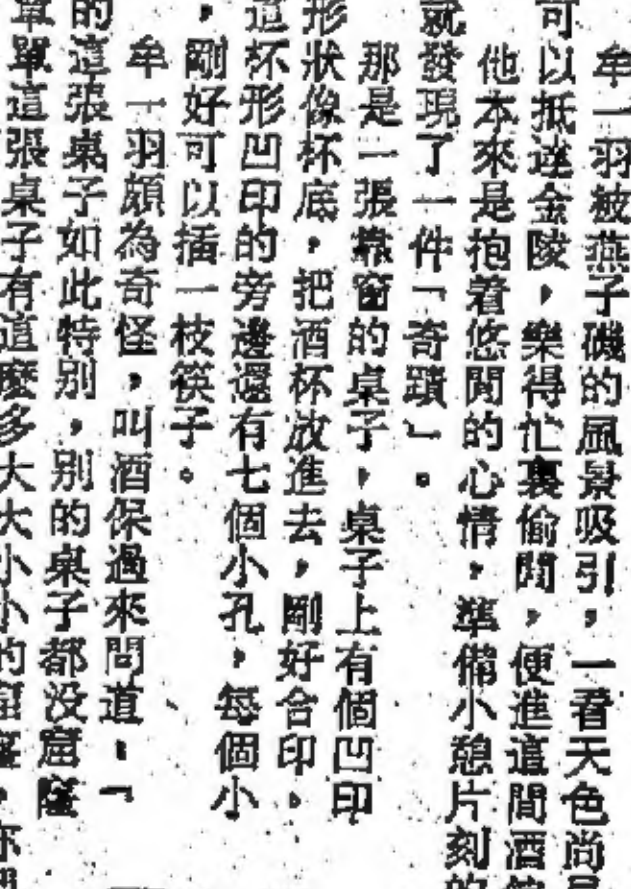 牟一羽被燕子磯的風景吸引，一看天色尚
可以抵達金陵，樂得忙裏偷閒，便進這間酒
他本來是抱着悠閒的心情，準備小憩片刻的
就發現了一件「奇蹟」。
那是一張靠窗的桌子，桌子上有個凹印
形狀像杯底，把酒杯放進去，剛好合印。
這杯形凹印的旁邊還有七個小孔，每個小
，剛好可以插一枝筷子。
牟一羽頗為奇怪，叫酒保過來問道：「
的這張桌子如此特別，別的桌子都没窟窿
單單這張桌子有這麼多大大小小的窟窿，